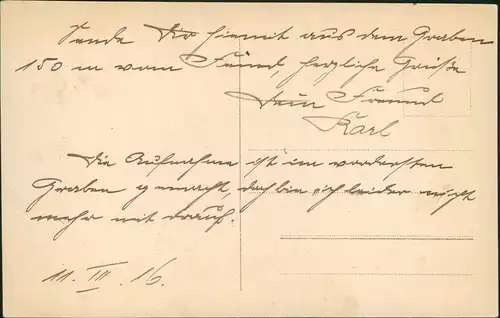 Sende Dir hiemit aus dem Graben
150 m vom Feind, herzliche Grüße
Dein Freund
Karl
Die Aufnahme ist im vordersten
Graben gemacht, doch bin ich leider nicht
mehr mit drauf.
11. III. 16.